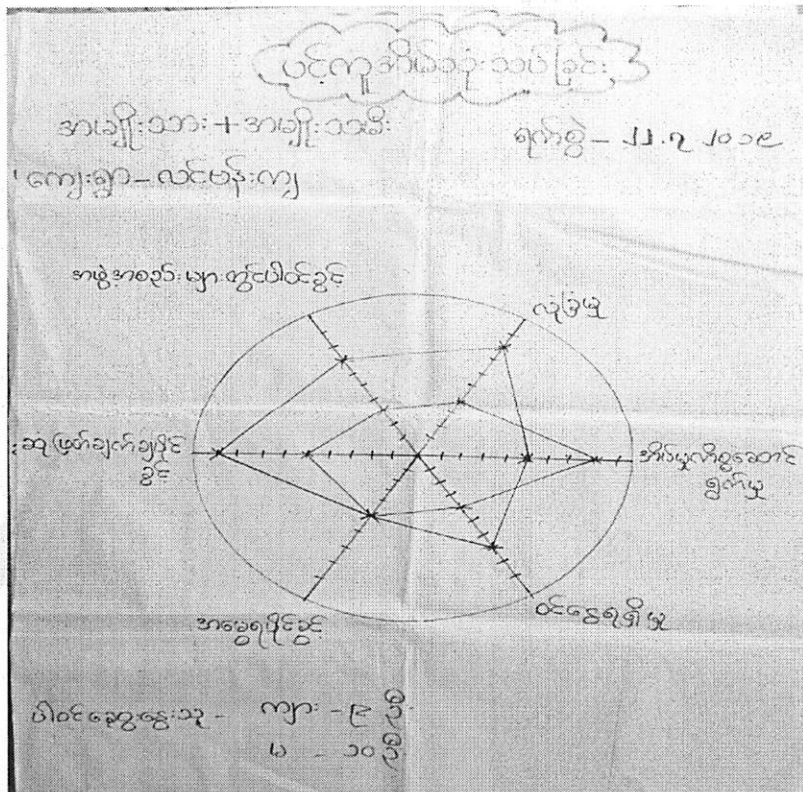 ပင့်ကူအိမ်သုံးသပ်ခြင်း
အမျိုးသား + အမျိုးသမီး
ရက်စွဲ - ၂၂.၇.၂၀၁၉
ကျေးရွာ - လင်ဗန်းကျ
အဖွဲ့အစည်းများတွင်ပါဝင်ခွင့်
လုံခြုံမှု
ဆုံးဖြတ်ချက်ချပိုင်
ခွင့်
အိမ်မှုကိစ္စဆောင်
ရွက်မှု
အမွေရပိုင်ခွင့်
ဝင်ငွေရရှိမှု
ပါဝင်ဆွေးနွေးသူ - ကျား - ၉ ဦး
မ - ၁၀ ဦး